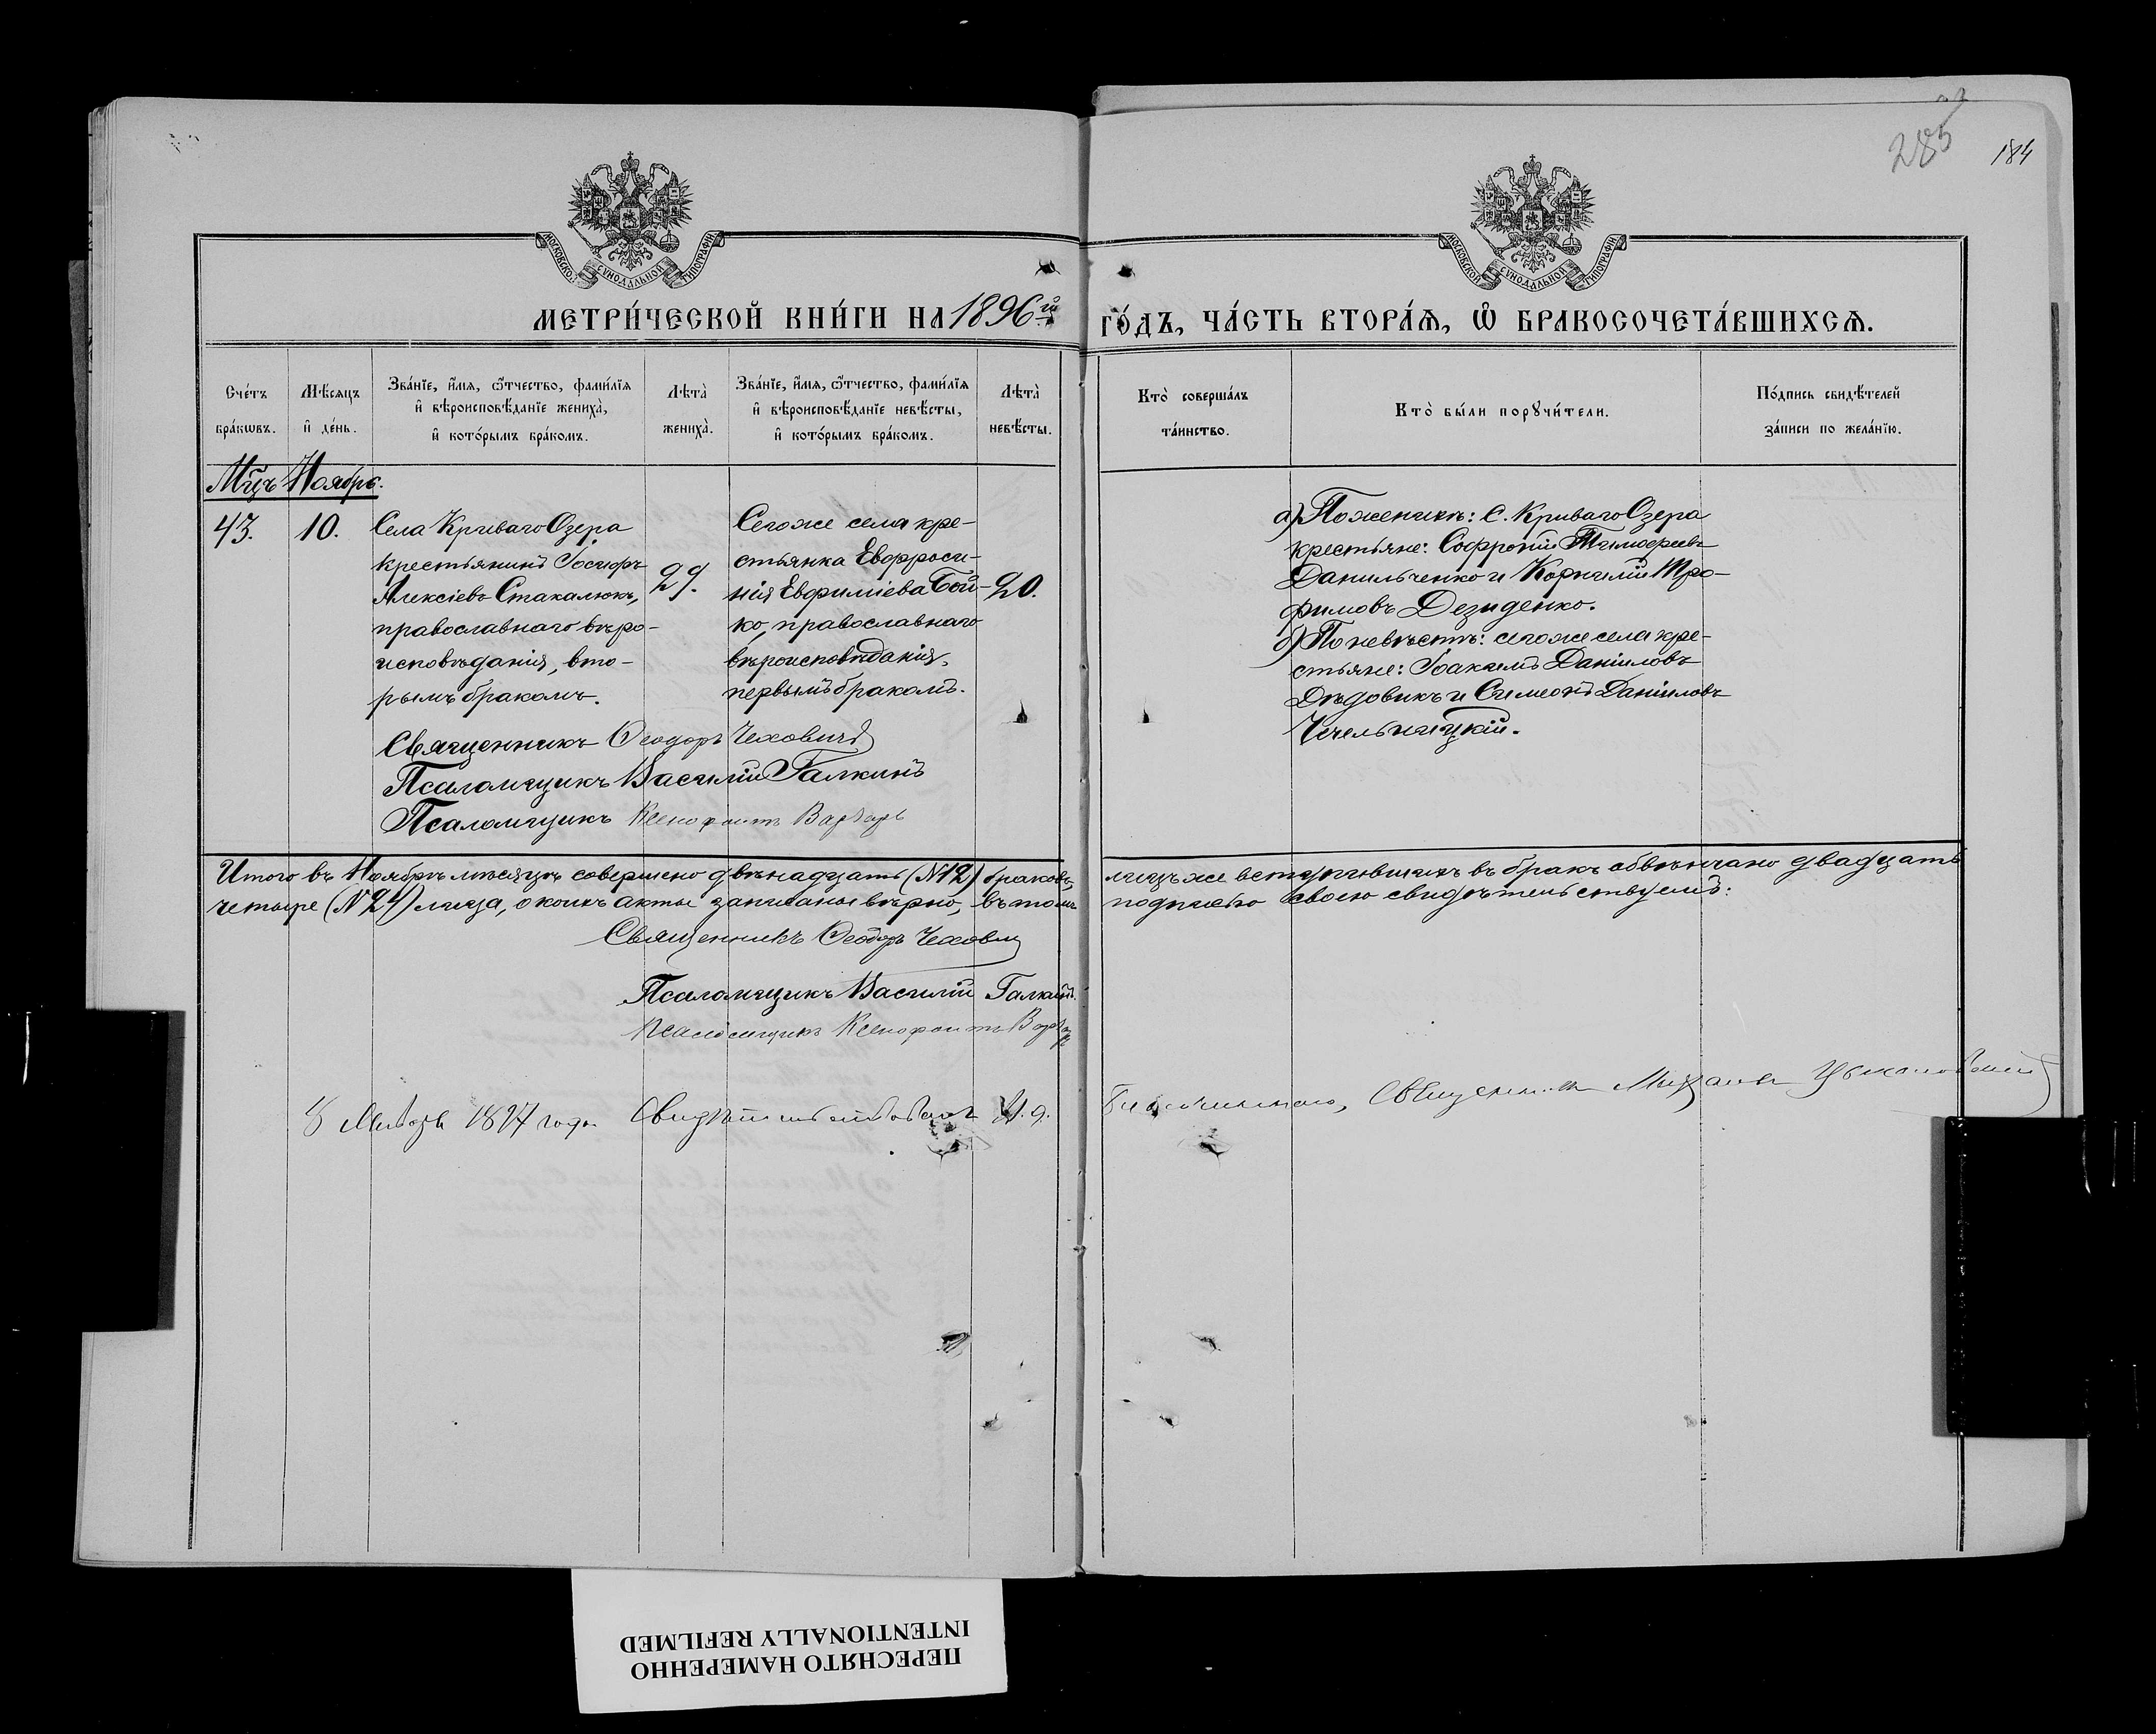 285
184
МОСКОВСКОЙ СѴНОДАЛЬНОЙ ТИПОГРАФІИ
МОСКОВСКОЙ СѴНОДАЛЬНОЙ ТИПОГРАФІИ
МЕТРИ́ЧЕСКОЙ КНИ́ГИ НА 1896й
ГО́ДЪ, ЧА́СТЬ ВТОРА́Я, Ѽ БРАКОСОЧЕТА́ВШИХСѦ.
Сче́тъ бра́кѡвъ.
Мѣ́сѧцъ и҆ де́нь.
Зва́нїе, и҆́мѧ, ѻ҆́тчество, фами́лїѧ
и҆ вѣроисповѣ́данїе жениха̀,
и҆ кото́рымъ бра́комъ.
Лѣта̀ жениха̀.
Зва́нїе, и҆́мѧ, ѻ҆́тчество, фами́лїѧ
и҆ вѣроисповѣ́данїе невѣ́сты,
и҆ кото́рымъ бра́комъ.
Лѣта̀ невѣ́сты.
Кто̀ соверша́лъ та́инство.
Кто̀ бы́ли порꙋчи́тели.
По́дпись свидѣ́телей
за́писи по жела́нїю.
Мцъ Ноябрь.
43.
10.
Села Криваго Озера
крестьянинъ Іосифъ
Алексіевъ Стакалюкъ,
православнаго вѣро-
исповѣданія, вто-
рымъ бракомъ.
29.
Сегоже села кре-
стьянка Евфроси-
нія Евфиміева Бой-
ко, православнаго
вѣроисповѣданія,
первымъ бракомъ.
20.
а) По женихѣ: с. Криваго Озера
крестьяне: Софроній Тимофеевъ
Данильченко и Корнилій Тро-
фимовъ Дезиденко.
б) По невѣстѣ: сегоже села кре-
стьяне: Іоакимъ Даніиловъ
Дѣдовикъ и Симеонъ Даніиловъ
Чечельницкій.
Священникъ Ѳеодоръ Чеховичъ
Псаломщикъ Василій Галкинъ
Псаломщикъ Ксенофонтъ
Итого въ Ноябрѣ мѣсяцѣ совершено двѣнадцать (№12) браковъ, лицъ же вступившихъ въ бракъ обвѣнчано двадцать
четыре (№24) лица, о коихъ акты записаны вѣрно, въ томъ подписью своею свидѣтельствуемъ:
Священникъ Ѳеодоръ Чехович
Псаломщикъ Василій Галкинъ
Псаломщикъ Ксенофонтъ
8 Января 1897 года Свидѣтельствовалъ И. д. Благочиннаго, Священникъ Михаилъ
ПЕРЕСНЯТО НАМЕРЕННО
INTENTIONALLY REFILMED